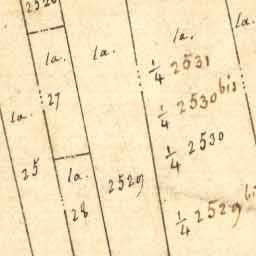 la.
la.
la.
la.
1/4 2531
27
1/4 2530 bis
la.
1/4 2530
25
la.
2529
28
1/4 2529